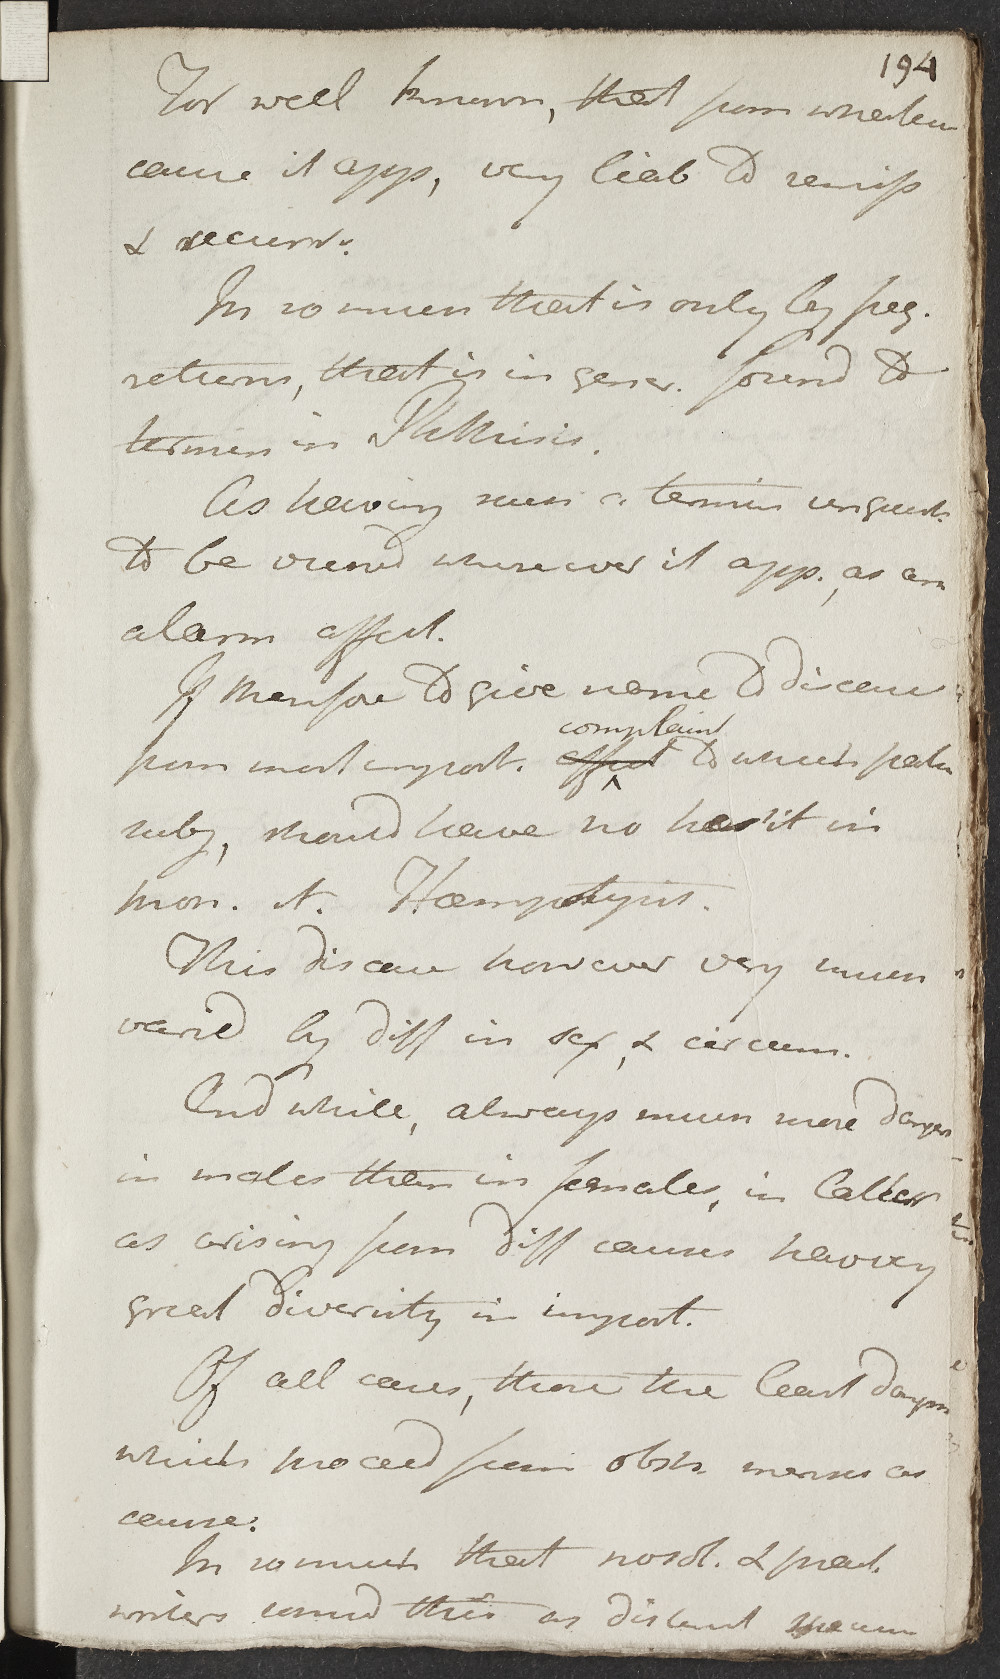 194
For well known, that from whatever
cause it app, very liab to remiss
& recurr.
In so much that is only by freq.
returns, that is in gener. found to
termin in Phthisis.
As having such a termin
to be viewed wherever it app., as an
alarm affect.
If therefore to give name to disease
complaint
from most import. affect to which patien
subj, should have no hesit in
mon. it. Hæmoptysis.
This disease however very much
varied by diff in sex, & circum.
And while, always much more danger
in males than in females, in latter
as arising from diff causes having
great diversity in import.
Of all cases, those the least danger
which proceed from obstr menses as
cause.
In so much that nosol. & pract.
writers consid this as distinct